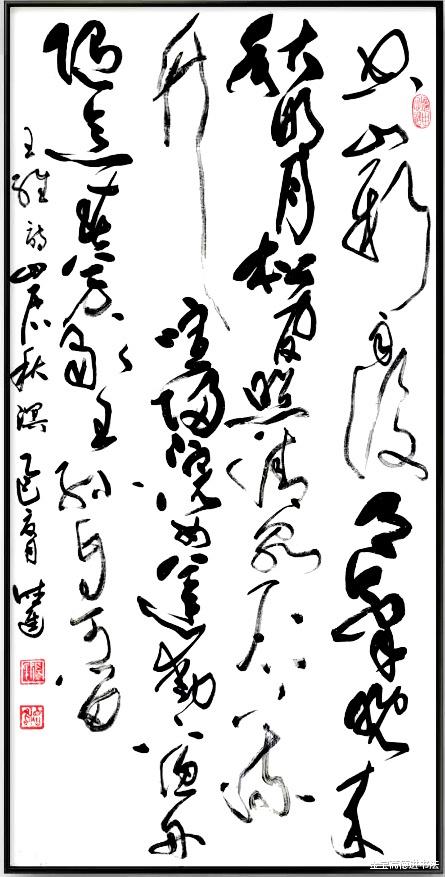 空山新雨後天氣晚來
秋明月松間照清泉石上流
竹喧歸浣女蓮動下漁舟
隨意春芳歇王孫自可留
王維詩山居秋暝乙巳夏月